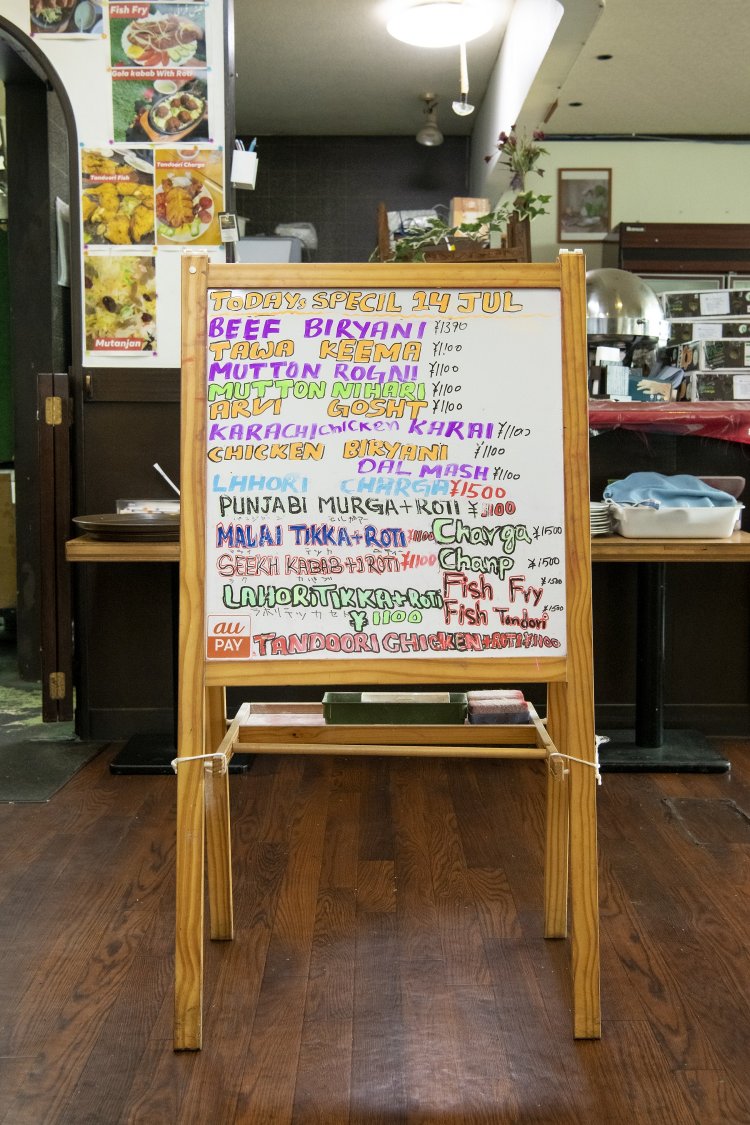 Fish Fry
Gola kabab With Roti
Tandoori Fish
Tandoori Charga
Mutanjan
TODAYs SPECIL 14 JUL
BEEF BIRYANI ¥1370
TAWA KEEMA ¥1100
MUTTON ROGNI ¥1100
MUTTON NIHARI ¥1100
ARVI GOSHT ¥1100
KARACHI CHICKEN KARAI ¥1100
CHICKEN BIRYANI ¥1100
DAL MASH ¥1100
LAHORI CHARGA ¥1500
PUNJABI MURGA+ROTI ¥1100
MALAI TIKKA+ROTI ¥1100
SEEKH KABAB+1 ROTI ¥1100
LAHORI TIKKA+ROTI
¥1100
Charga ¥1500
Chanp ¥1500
Fish Fry ¥1500
Fish Tandori ¥1500
au
PAY
TANDOORI CHICKEN+ROTI ¥1100